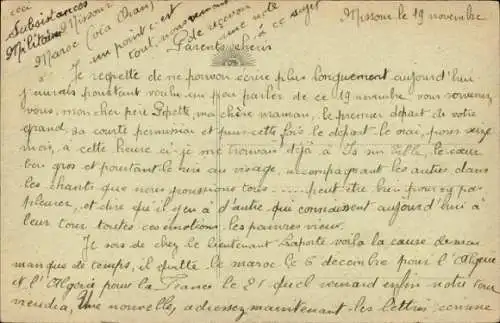 ceci
Subsistances
Militaires Missour
Maroc (via Oran)
un point c'est
tout, nous venons
de recevoir
une note
à ce sujet
Missour le 19 novembre
Parents chéris
Je regrette de ne pouvoir écrire plus longuement aujourd'hui
j'aurais pourtant voulu un peu parler de ce 19 novembre, vous souvenez
vous, mon cher père Pépette, ma chère maman, le premier départ de votre
grand, sa courte permission et puis cette fois le départ le vrai, pour seize
mois, à cette heure ci je me trouvais déjà à Is sur Tille, le cœur
bien gros et pourtant le rire au visage, accompagnant les autres dans
les chants que nous poussions tous ..... peut être bien pour ne pas
pleurer, et dire qu'il y en a d'autre qui connaissent aujourd'hui à
leur tour toutes ces émotions, les pauvres vieux.
Je sors de chez le lieutenant Laporte voilà la cause de mon
manque de temps, il quitte le maroc le 5 décembre pour l'Algérie
et l'Algérie pour la France le 21 quel renard enfin notre tour
viendra, Une nouvelle, adressez maintenant les lettres comme